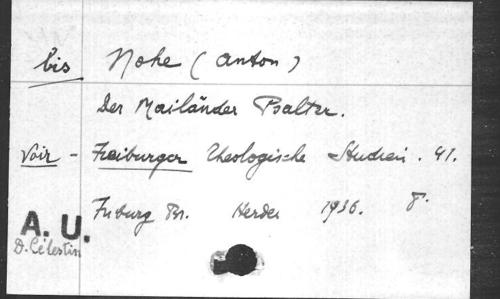 bis Nohe (Anton)
Der Mailänder Psalter.
Voir - Freiburger Theologische Studien. 41.
Friburg Br. Herder 1936. 8°
A. U.
D. Célestin